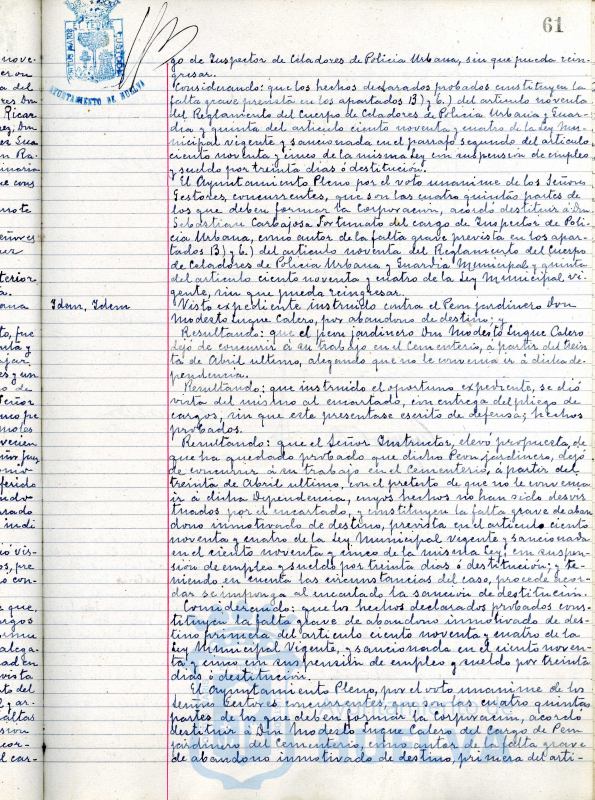 61
AYUNTAMIENTO DE HUELVA
go de Inspector de Celadores de Policia Urbana, sin que pueda rein-
gresar.
Considerando: que los hechos declarados probados constituyen la
falta grave prevista en los apartados B) y 6.) del articulo noventa
del Reglamento del Cuerpo de Celadores de Policia Urbana y Guar-
dia y quinta del articulo ciento noventa y cuatro de la Ley Mu-
nicipal vigente y sancionada en el parrafo segundo del articulo
ciento noventa y cinco de la misma Ley con suspension de empleo
y sueldo por treinta dias ó destitución.
El Ayuntamiento Pleno por el voto unanime de los Señores
Gestores, concurrentes, que son las cuatro quintas partes de
los que deben formar la Corporación, acordó destituir á Don
Sebastian Carbajosa Fortunato del cargo de Inspector de Poli-
cia Urbana, como autor de la falta grave prevista en los apar-
tados B) y 6.) del articulo noventa del Reglamento del Cuerpo
de Celadores de Policia Urbana y Guardia Municipal y quinta
del articulo ciento noventa y cuatro de la Ley Municipal vi-
gente, sin que pueda reingresar.
Idem, Idem
Visto expediente instruido contra el Peon jardinero Don
Modesto Luque Calero, por abandono de destino; y
Resultando: que el peon jardinero Don Modesto Luque Calero
dejó de concurrir á su trabajo en el Cementerio, á partir del trein-
ta de Abril ultimo, alegando que no le convenia ir á dicha de-
pendencia.
Resultando: que instruido el oportuno expediente, se dió
vista del mismo al encartado, con entrega del pliego de
cargos, sin que este presentase escrito de defensa; hechos
probados.
Resultando: que el Señor Instructor, elevó propuesta, de
que ha quedado probado que dicho Peon jardinero, dejó
de concurrir á su trabajo en el Cementerio, á partir del
treinta de Abril ultimo, con el pretexto de que no le convenia
ir á dicha Dependencia, cuyos hechos no han sido desvir
tuados por el encartado, y constituyen la falta grave de aban
dono inmotivado de destino, prevista en el articulo ciento
noventa y cuatro de la Ley Municipal vigente y sancionada
en el ciento noventa y cinco de la misma Ley, con suspen-
sión de empleo y sueldo por treinta dias ó destitución; y te-
niendo en cuenta las circunstancias del caso, procede acor-
dar se imponga al encartado la sanción de destitución.
Considerando: que los hechos declarados probados cons-
tituyen la falta grave de abandono inmotivado de des-
tino primera del articulo ciento noventa y cuatro de la
Ley Municipal Vigente, y sancionada en el ciento noven-
ta y cinco con suspensión de empleo y sueldo por treinta
dias ó destitución.
El Ayuntamiento Pleno, por el voto unanime de los
Señores Gestores, concurrentes, que son las cuatro quintas
partes de los que deben formar la Corporación, acordó
destituir á Don Modesto Luque Calero del Cargo de Peon
jardinero del Cementerio, como autor de la falta grave
de abandono inmotivado de destino, primera del arti-